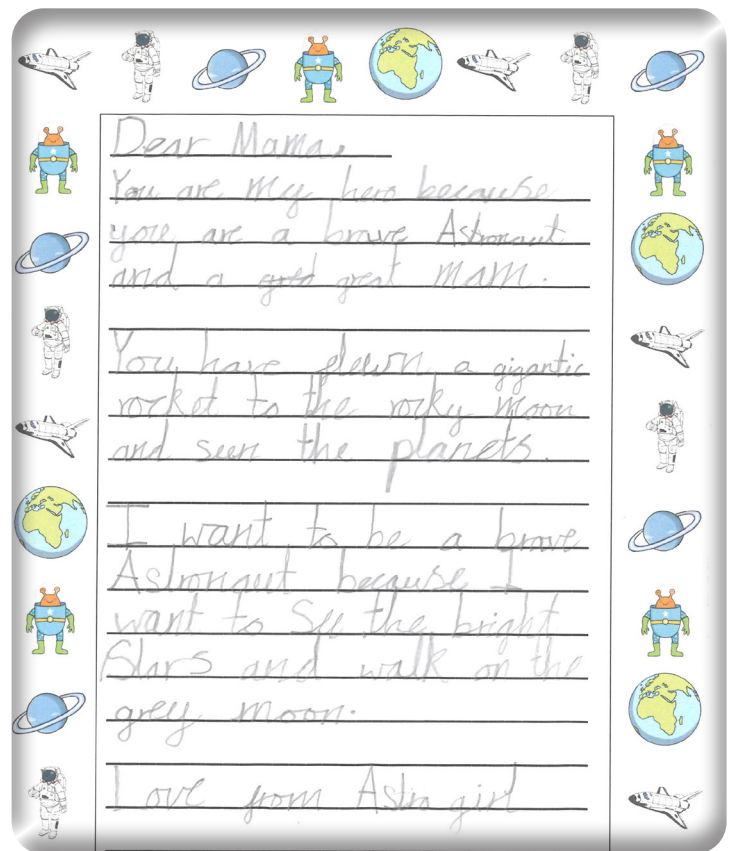 Dear Mama,
You are my hero because
you are a brave Astronaut
and a great mam.
You have flewn a gigantic
rocket to the rocky moon
and seen the planets.
I want to be a brave
Astronaut because I
want to see the bright
Stars and walk on the
grey moon.
Love from Astro girl